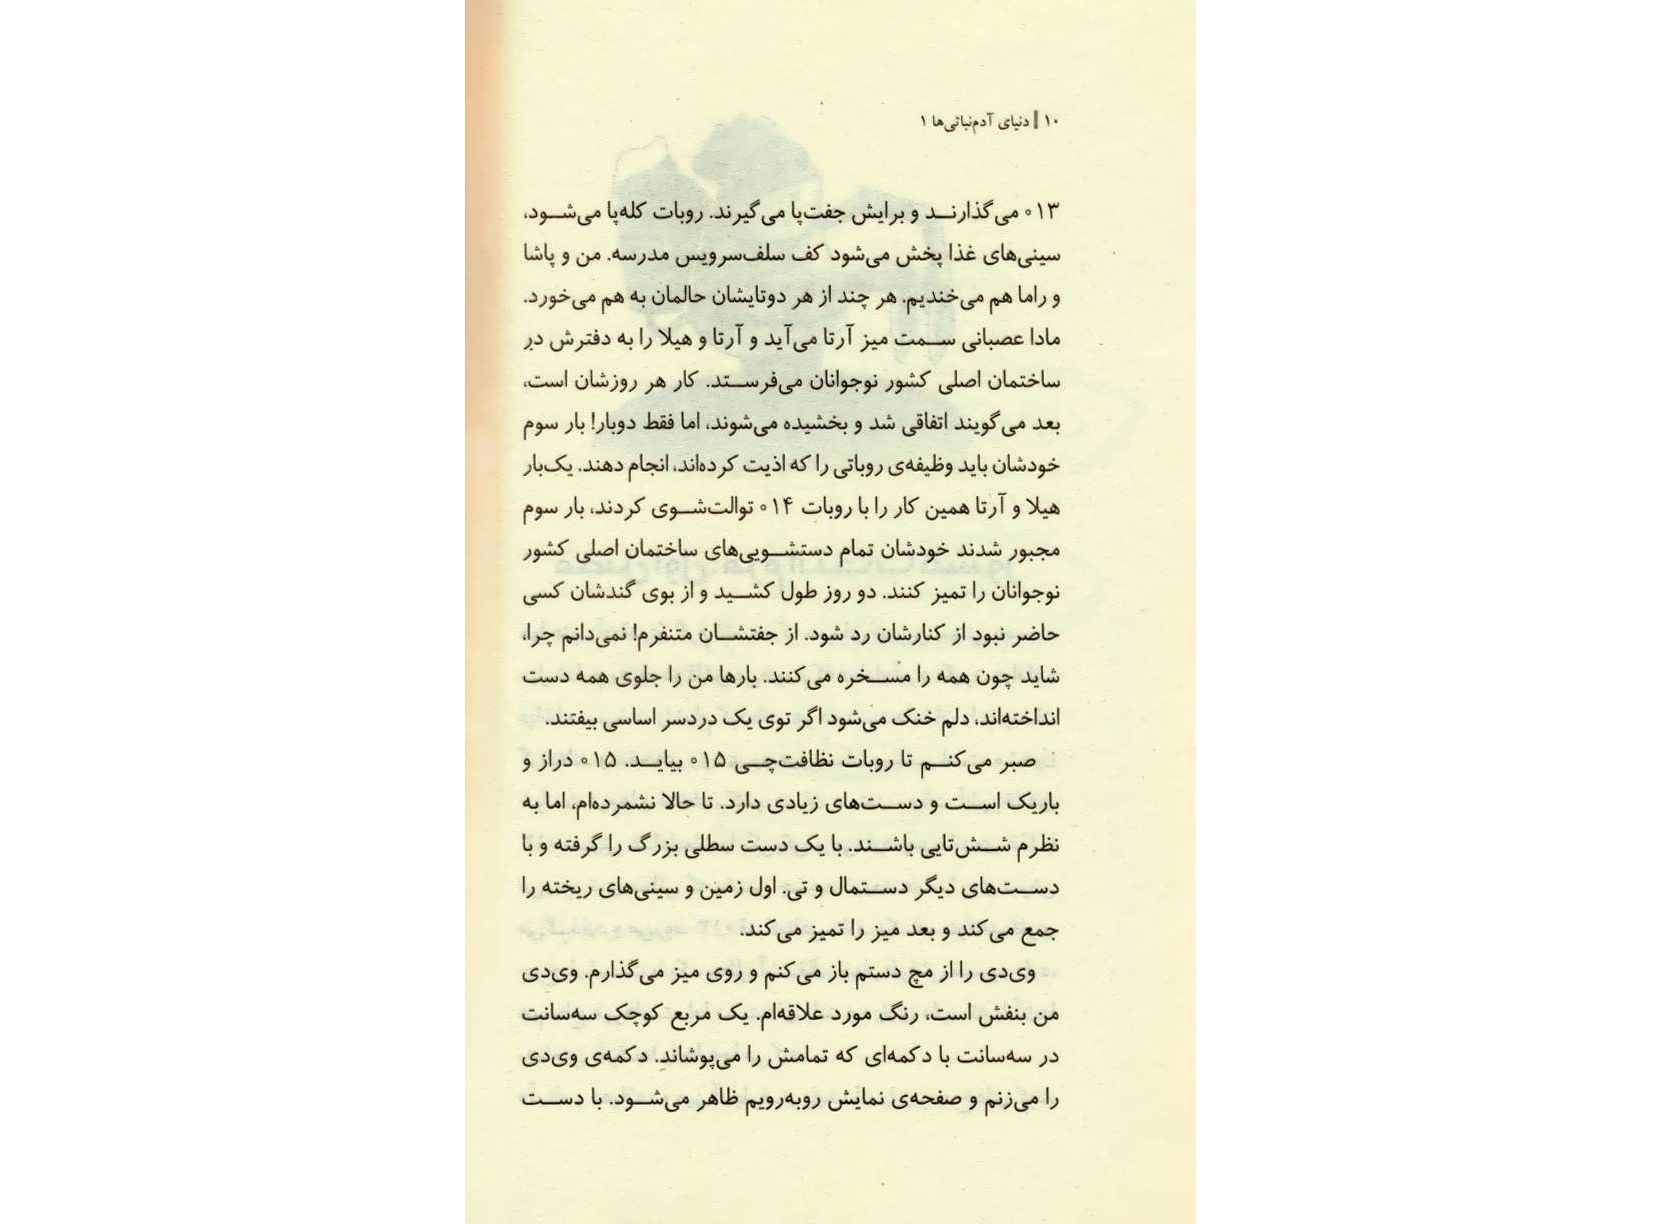 ۱۰ | دنیای آدم‌نباتی‌ها ۱
۰۱۳ می‌گذارنـد و برایش جفت‌پا می‌گیرند. روبات کله‌پا می‌شـود،
سینی‌های غذا پخش می‌شود کف سلف‌سرویس مدرسه. من و پاشا
و راما هم می‌خندیم. هر چند از هر دوتایشان حالمان به هم می‌خورد.
مادا عصبانی سـمت میز آرتا می‌آید و آرتا و هیلا را به دفترش در
ساختمان اصلی کشور نوجوانان می‌فرسـتد. کار هر روزشان است،
بعد می‌گویند اتفاقی شد و بخشیده می‌شوند، اما فقط دوبار! بار سوم
خودشان باید وظیفه‌ی روباتی را که اذیت کرده‌اند، انجام دهند. یک‌بار
هیلا و آرتا همین کار را با روبات ۰۱۴ توالت‌شـوی کردند، بار سوم
مجبور شدند خودشان تمام دستشـویی‌های ساختمان اصلی کشور
نوجوانان را تمیز کنند. دو روز طول کشـید و از بوی گندشان کسی
حاضر نبود از کنارشان رد شود. از جفتشـان متنفرم! نمی‌دانم چرا،
شاید چون همه را مسـخره می‌کنند. بارها من را جلوی همه دست
انداخته‌اند، دلم خنک می‌شود اگر توی یک دردسر اساسی بیفتند.
صبر می‌کنـم تا روبات نظافت‌چـی ۰۱۵ بیایـد. ۰۱۵ دراز و
باریک اسـت و دسـت‌های زیادی دارد. تا حالا نشمرده‌ام، اما به
نظرم شـش‌تایی باشـند. با یک دست سطلی بزرگ را گرفته و با
دسـت‌های دیگر دسـتمال و تی. اول زمین و سینی‌های ریخته را
جمع می‌کند و بعد میز را تمیز می‌کند.
وی‌دی را از مچ دستم باز می‌کنم و روی میز می‌گذارم. وی‌دی
من بنفش است، رنگ مورد علاقه‌ام. یک مربع کوچک سه‌سانت
در سه‌سانت با دکمه‌ای که تمامش را می‌پوشاند. دکمه‌ی وی‌دی
را می‌زنم و صفحه‌ی نمایش روبه‌رویم ظاهر می‌شـود. با دسـت